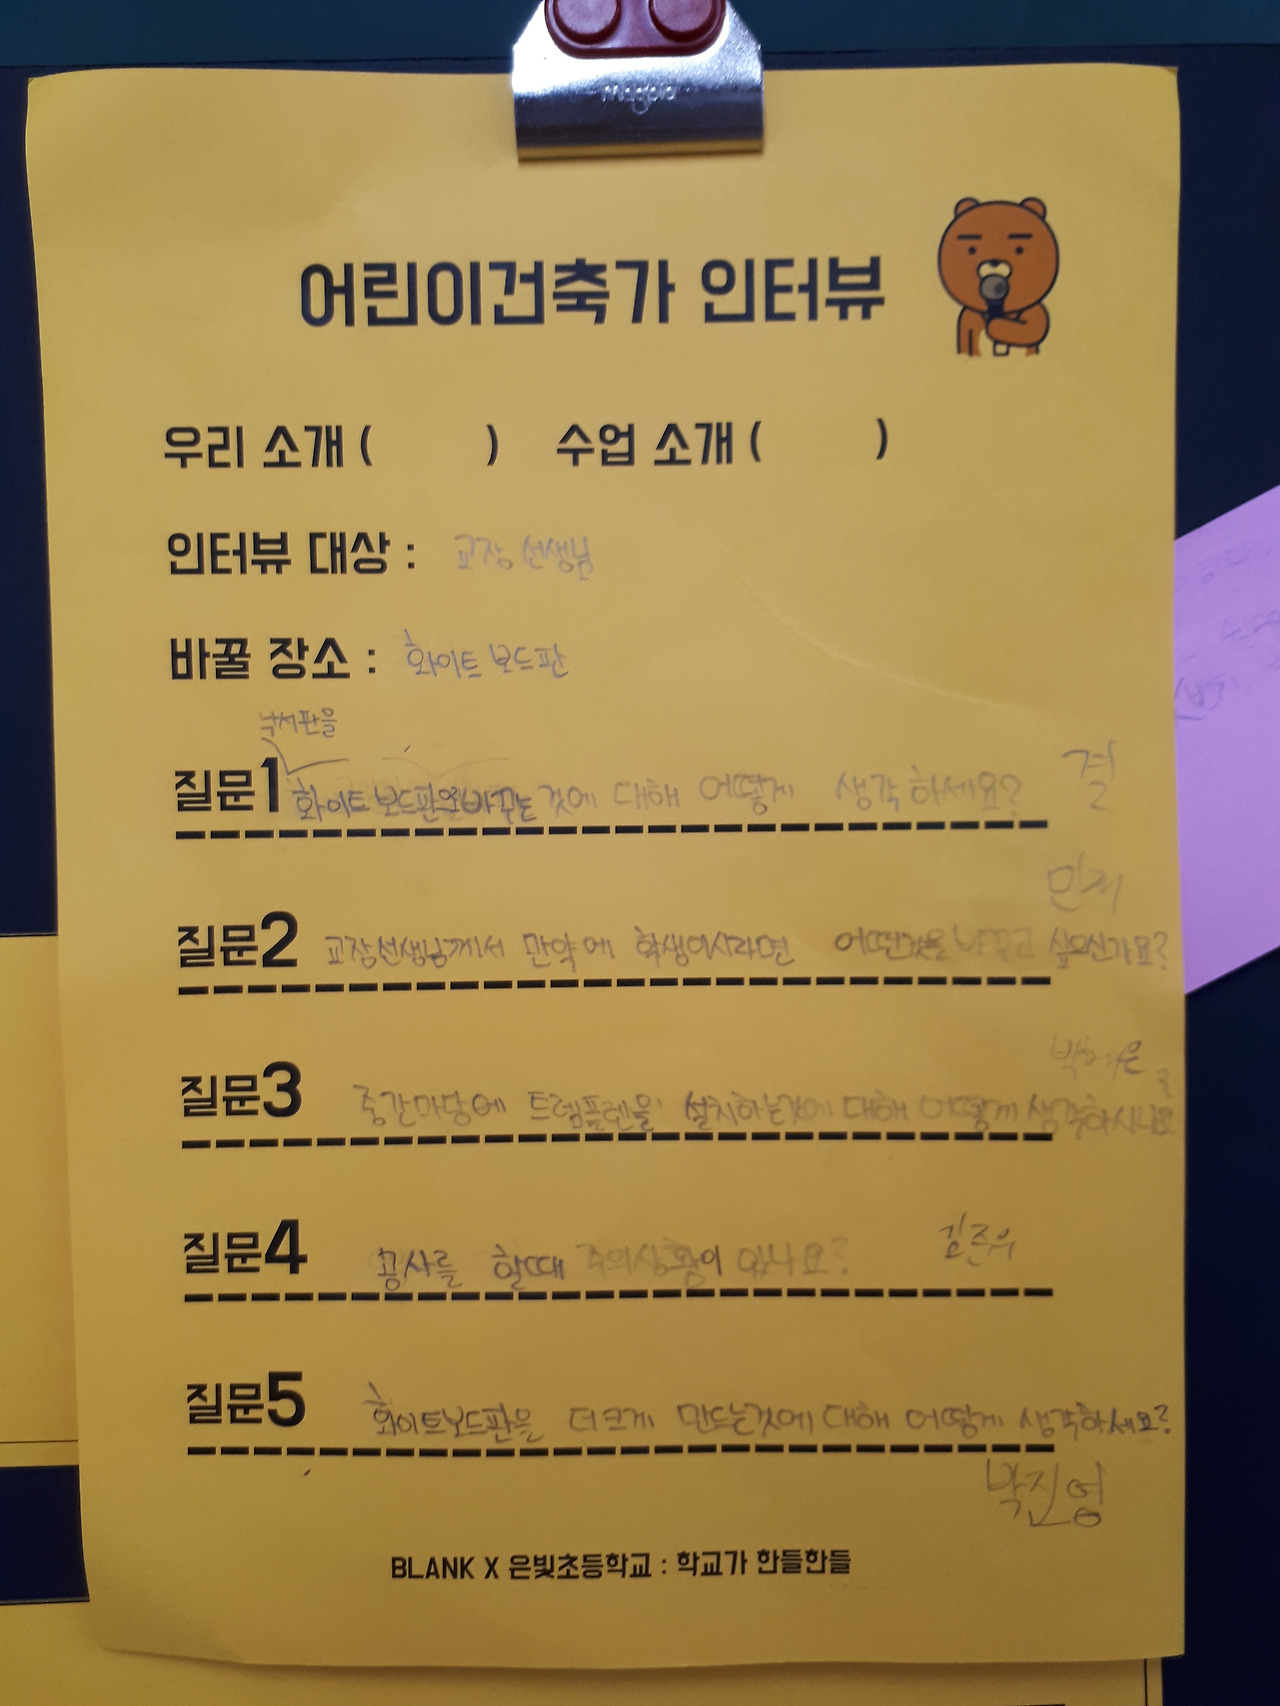 어린이건축가 인터뷰
우리 소개 (          )   수업 소개 (          )
인터뷰 대상 : 교장 선생님
바꿀 장소 : 화이트 보드판
낙서판을
질문1 화이트 보드판으로 바꾸는 것에 대해 어떻게 생각하세요? 결
민저
질문2 교장선생님께서 만약에 학생이시라면 어떤것을 바꾸고 싶으신가요?
질문3 중간마당에 트램플렌을 설치하는것에 대해 어떻게 생각하시나요
질문4 공사를 할때 주의상황이 있나요? 김준우
질문5 화이트보드판을 더크게 만드는것에 대해 어떻게 생각하세요?
박진영
BLANK X 은빛초등학교 : 학교가 한들한들